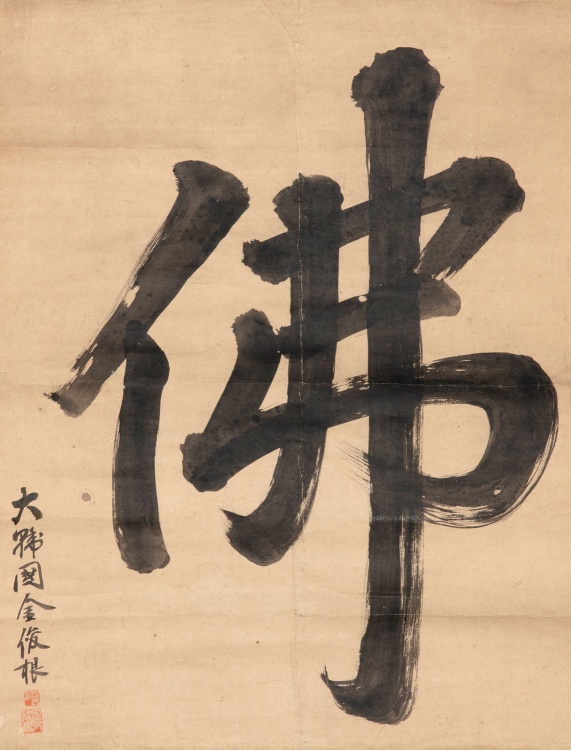 佛
大韓國金俊根